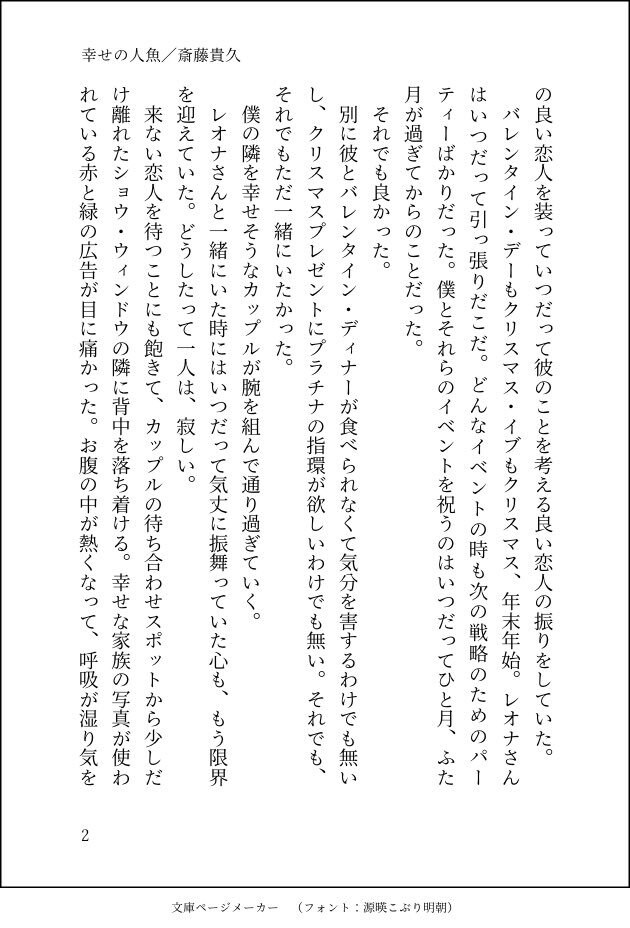 幸せの人魚／斎藤貴久
の良い恋人を装っていつだって彼のことを考える良い恋人の振りをしていた。
バレンタイン・デーもクリスマス・イブもクリスマス、年末年始。レオナさん
はいつだって引っ張りだこだ。どんなイベントの時も次の戦略のためのパー
ティーばかりだった。僕とそれらのイベントを祝うのはいつだってひと月、ふた
月が過ぎてからのことだった。
それでも良かった。
別に彼とバレンタイン・ディナーが食べられなくて気分を害するわけでも無い
し、クリスマスプレゼントにプラチナの指環が欲しいわけでも無い。それでも、
それでもただ一緒にいたかった。
僕の隣を幸せそうなカップルが腕を組んで通り過ぎていく。
レオナさんと一緒にいた時にはいつだって気丈に振舞っていた心も、もう限界
を迎えていた。どうしたって一人は、寂しい。
来ない恋人を待つことにも飽きて、カップルの待ち合わせスポットから少しだ
け離れたショウ・ウィンドウの隣に背中を落ち着ける。幸せな家族の写真が使わ
れている赤と緑の広告が目に痛かった。お腹の中が熱くなって、呼吸が湿り気を
2
文庫ページメーカー　（フォント：源暎こぶり明朝）